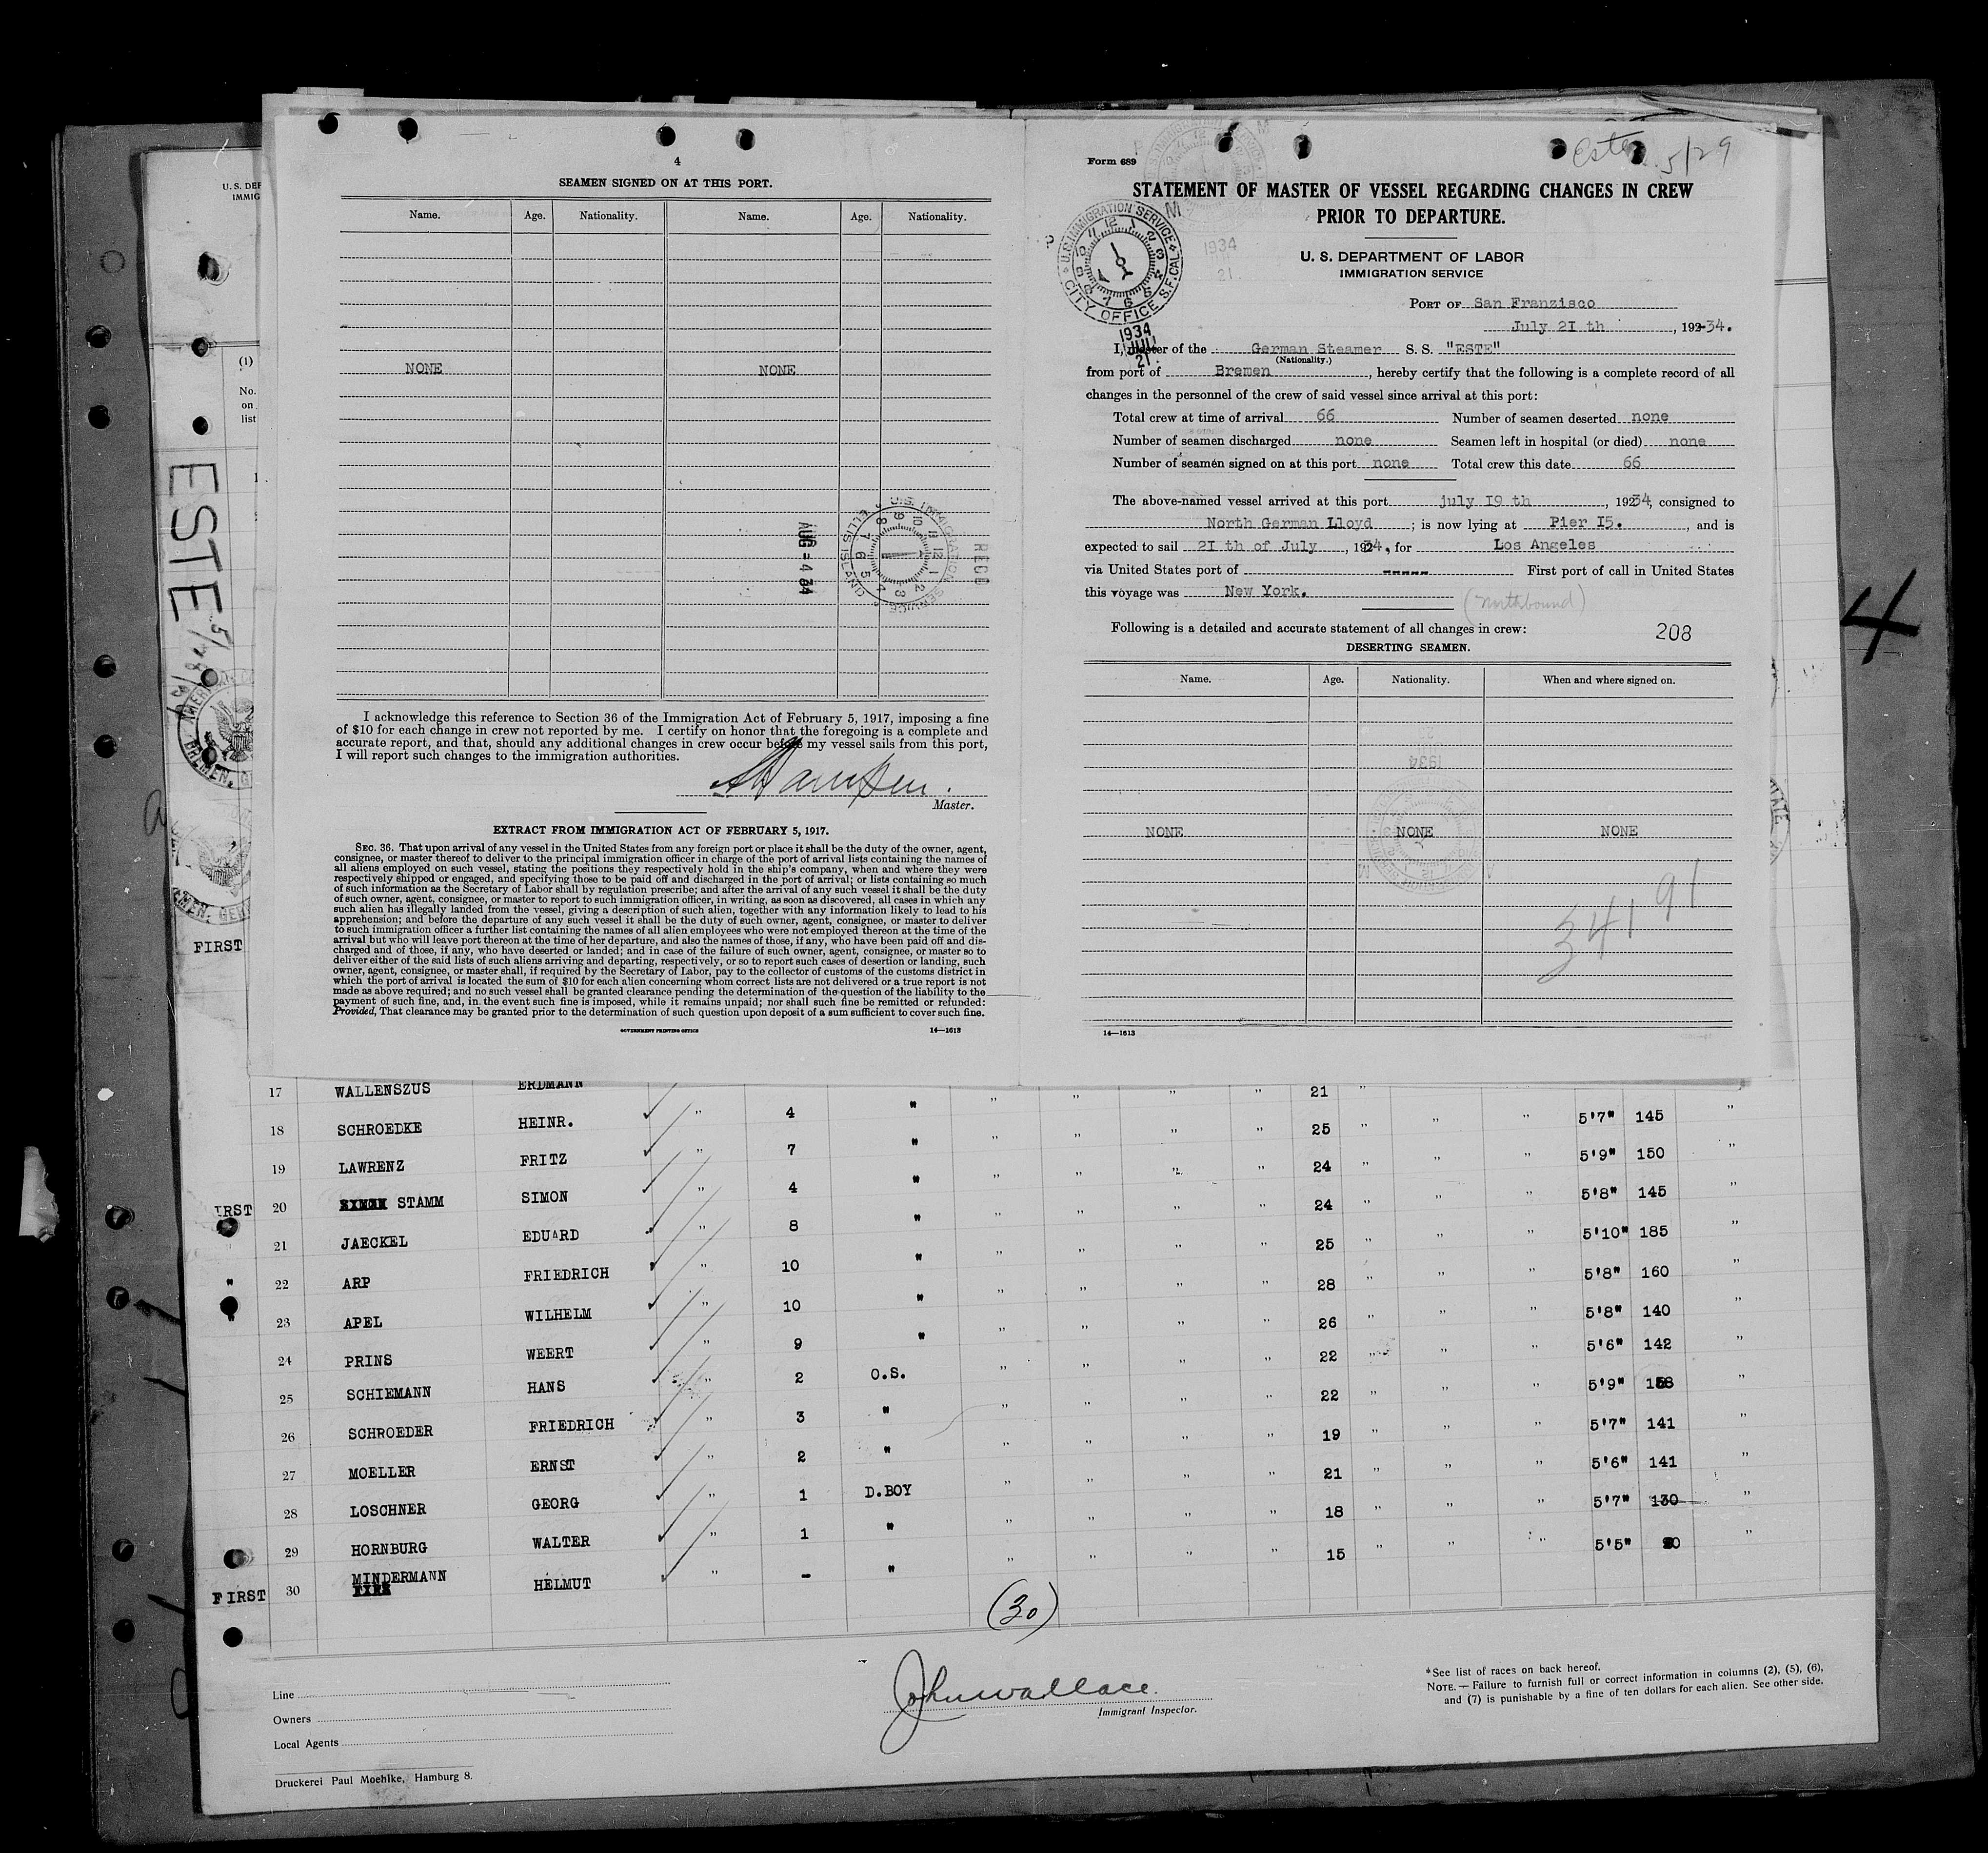 4
SEAMEN SIGNED ON AT THIS PORT.
Name. Age. Nationality. Name. Age. Nationality.
NONE NONE
U.S. IMMIGRATION SERVICE
ELLIS ISLAND
RECD
AUG -4 34
I acknowledge this reference to Section 36 of the Immigration Act of February 5, 1917, imposing a fine
of $10 for each change in crew not reported by me. I certify on honor that the foregoing is a complete and
accurate report, and that, should any additional changes in crew occur before my vessel sails from this port,
I will report such changes to the immigration authorities.
Master.
EXTRACT FROM IMMIGRATION ACT OF FEBRUARY 5, 1917.
SEC. 36. That upon arrival of any vessel in the United States from any foreign port or place it shall be the duty of the owner, agent,
consignee, or master thereof to deliver to the principal immigration officer in charge of the port of arrival lists containing the names of
all aliens employed on such vessel, stating the positions they respectively hold in the ship's company, when and where they were
respectively shipped or engaged, and specifying those to be paid off and discharged in the port of arrival; or lists containing so much
of such information as the Secretary of Labor shall by regulation prescribe; and after the arrival of any such vessel it shall be the duty
of such owner, agent, consignee, or master to report to such immigration officer, in writing, as soon as discovered, all cases in which any
such alien has illegally landed from the vessel, giving a description of such alien, together with any information likely to lead to his
apprehension; and before the departure of any such vessel it shall be the duty of such owner, agent, consignee, or master to deliver
to such immigration officer a further list containing the names of all alien employees who were not employed thereon at the time of the
arrival but who will leave port thereon at the time of her departure, and also the names of those, if any, who have been paid off and dis-
charged and of those, if any, who have deserted or landed; and in case of the failure of such owner, agent, consignee, or master so to
deliver either of the said lists of such aliens arriving and departing, respectively, or so to report such cases of desertion or landing, such
owner, agent, consignee, or master shall, if required by the Secretary of Labor, pay to the collector of customs of the customs district in
which the port of arrival is located the sum of $10 for each alien concerning whom correct lists are not delivered or a true report is not
made as above required; and no such vessel shall be granted clearance pending the determination of the question of the liability to the
payment of such fine, and, in the event such fine is imposed, while it remains unpaid; nor shall such fine be remitted or refunded:
Provided, That clearance may be granted prior to the determination of such question upon deposit of a sum sufficient to cover such fine.
GOVERNMENT PRINTING OFFICE 14—1613
Este 5/29
Form 689
STATEMENT OF MASTER OF VESSEL REGARDING CHANGES IN CREW
PRIOR TO DEPARTURE.
U.S. IMMIGRATION SERVICE
CITY OFFICE S.F. CAL.
1934
JUL
21
U. S. DEPARTMENT OF LABOR
IMMIGRATION SERVICE
PORT OF San Franzisco
July 2I th, 192-34.
I, master of the German Steamer S. S. "ESTE"
(Nationality.)
from port of Bremen, hereby certify that the following is a complete record of all
changes in the personnel of the crew of said vessel since arrival at this port:
Total crew at time of arrival 66 Number of seamen deserted none
Number of seamen discharged none Seamen left in hospital (or died) none
Number of seamen signed on at this port none Total crew this date 66
The above-named vessel arrived at this port july I9 th, 19234, consigned to
North German Lloyd; is now lying at Pier I5., and is
expected to sail 2I th of July, 19234, for Los Angeles
via United States port of ----- First port of call in United States
this voyage was New York. (Northbound)
Following is a detailed and accurate statement of all changes in crew: 208
DESERTING SEAMEN.
Name. Age. Nationality. When and where signed on.
1934
NONE NONE NONE
34191
14—1613
4
U. S. DEP
IMMIG
(1)
No.
on
list
ESTE
FIRST
17 WALLENSZUS ERDMANN 21 "
18 SCHROEDKE HEINR. " 4 " " " " " 25 " " " 5'7" 145 "
19 LAWRENZ FRITZ " 7 " " " " " 24 " " " 5'9" 150 "
IRST 20 STAMM SIMON " 4 " " " " " 24 " " " 5'8" 145 "
21 JAECKEL EDUARD " 8 " " " " " 25 " " " 5'10" 185 "
" 22 ARP FRIEDRICH " 10 " " " " " 28 " " " 5'8" 160 "
23 APEL WILHELM " 10 " " " " " 26 " " " 5'8" 140 "
24 PRINS WEERT " 9 " " " " " 22 " " " 5'6" 142 "
25 SCHIEMANN HANS " 2 O.S. " " " " 22 " " " 5'9" "
26 SCHROEDER FRIEDRICH " 3 " " " " " 19 " " " 5'7" 141 "
27 MOELLER ERNST " 2 " " " " " 21 " " " 5'6" 141 "
28 LOSCHNER GEORG " 1 D.BOY " " " " 18 " " " 5'7" 130 "
29 HORNBURG WALTER " 1 " " " " " 15 " " " 5'5" "
FIRST 30 MINDERMANN HELMUT " - "
(30)
Line
Owners
Local Agents
John Wallace
Immigrant Inspector.
*See list of races on back hereof.
NOTE.—Failure to furnish full or correct information in columns (2), (5), (6),
and (7) is punishable by a fine of ten dollars for each alien. See other side.
Druckerei Paul Moehlke, Hamburg 8.